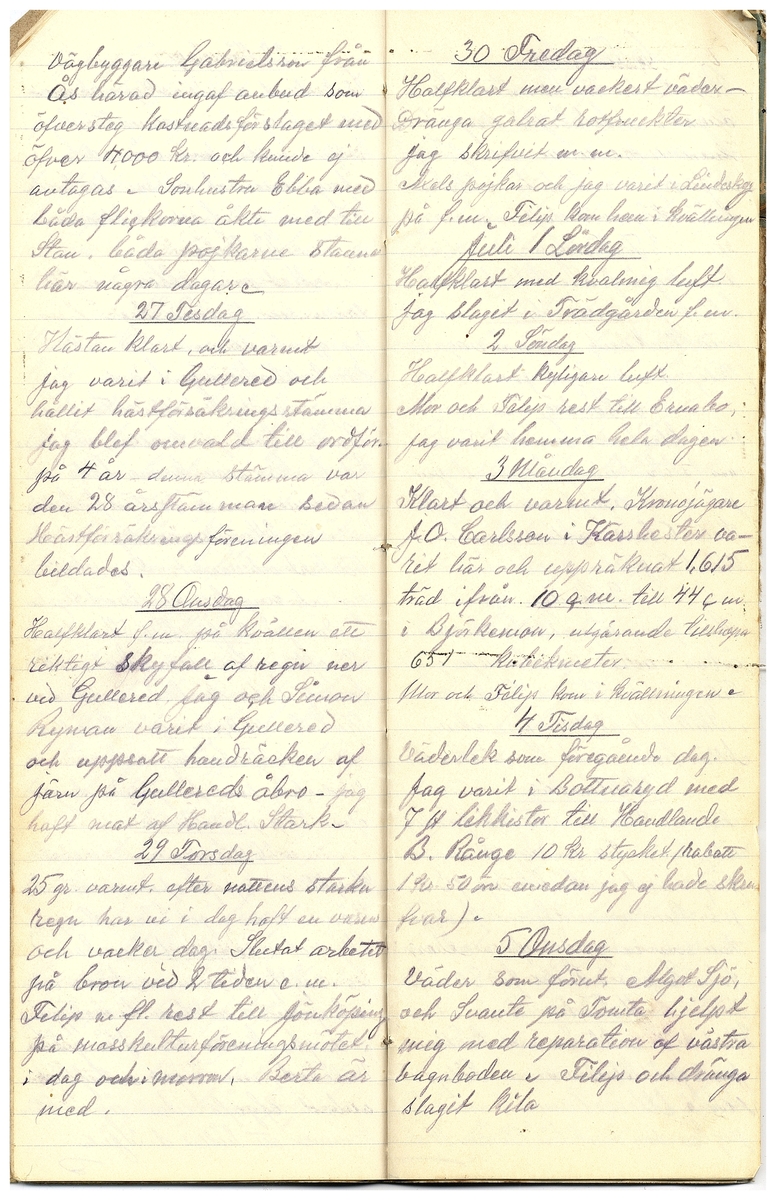 vägbyggare Gabrielsson från
Ås härad ingaf anbud som
öfversteg kostnadsförslaget med
öfver 4000 Kr. och kunde ej
antagas. Sonhustru Ebba med
båda flickorna åkte med till
Stan. båda pojkarne stanna
här några dagar.
27 Tisdag
Nästan klart, och varmt
jag varit i Gullered och
hållit hästförsäkringsstämma
jag blef omvald till ordför.
på 4 år - denna stämma var
den 28 årsstämman sedan
Hästförsäkringsföreningen
bildades.
28 Onsdag
Halfklart f.m. på kvällen ett
riktigt skyfall af regn ner
vid Gullered. Jag och Simon
Ryman varit i Gullered
och uppsatt handräcken af
järn på Gullereds åbro - jag
haft mat af Handl. Stark.
29 Torsdag
25 gr. varmt. efter nattens starka
regn har vi i dag haft en varm
och vacker dag. Slutat arbetet
på bron vid 2 tiden e.m.
Filip m. fl. rest till Jönköping
på mosskulturföreningsmötet
i dag och i morron. Berta är
med.
30 Fredag
Halfklart men vackert väder -
Dränga galrat rotfruckter
jag skrifvit m.m.
Axels pojkar och jag varit i
på f.m. Filip kom hem i kvällningen
Juli 1 Lördag
Halfklart med kvalmig luft.
jag slagit i Trädgården f.m.
2 Söndag
Halfklart kyligare luft.
Mor och Filip rest till Ernabo,
jag varit hemma hela dagen
3 Måndag
Klart och varmt. Kronojägare
J.O. Carlsson i Kärrhester va-
rit här och uppräknat 1,615
träd ifrån 10 c.m. till 44 c.m
i Björkemon, utgörande tillhopa
651 kubikmeter.
Mor och Filip kom i kvällningen.
4 Tisdag
Väderlek som föregående dag.
Jag varit i Bottnaryd med
7 st likkistor till Handlande
B. Rånge 10 kr stycket (rabatt
1 Kr 50 öre emedan jag ej hade skru
fvar).
5 Onsdag
Väder som förut. Algot Sjö,
och Svante på Tomta hjelpt
mig med reparation af västra
vagnboden. Filip och dränga
slagit Kila